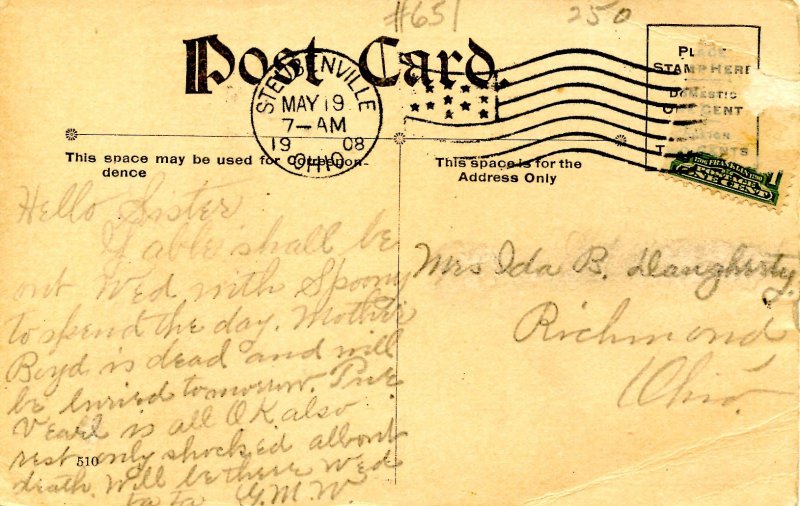 #651 250
Post Card.
STEUBENVILLE
MAY 19
7-AM
1908
OHIO
PLACE
STAMP HERE
DOMESTIC
CENT
CENTS
FRANKLIN
POSTAGE
ONE CENT
This space may be used for correspon-
dence
This space is for the
Address Only
Hello Sister
If able shall be
out Wed with Spoony
to spend the day. Mother
Boyd is dead and will
be buried tomorrow.
is all O K also
rest only shocked about
death. Will be there Wed
ta ta G. M. W.
510
Mrs Ida B. Daugherty,
Richmond
Ohio.